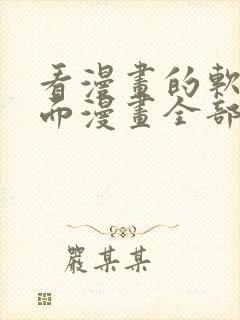 看漫畫的軟
而漫畫全部
嚴某某